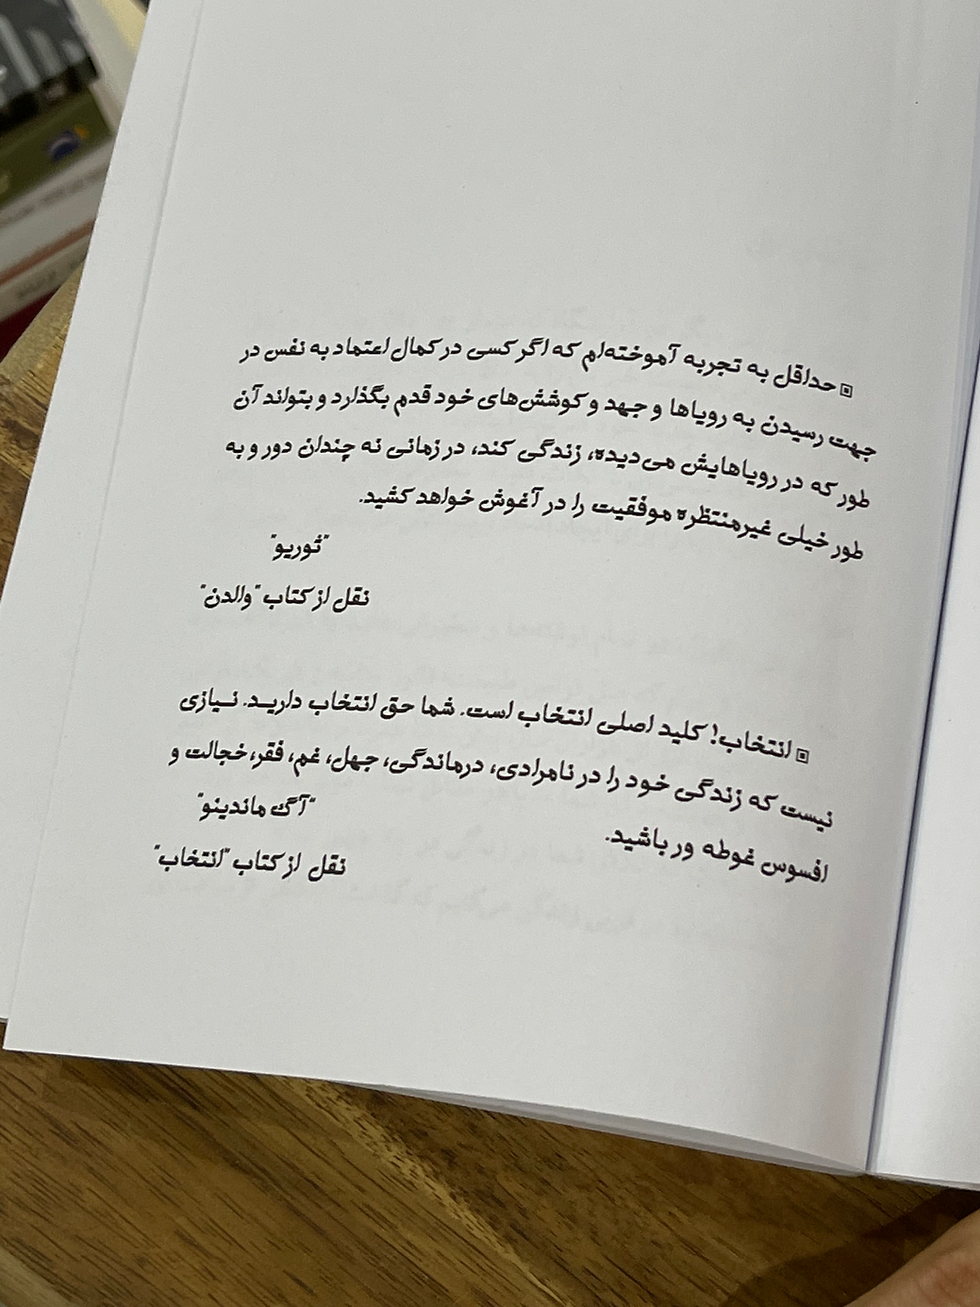 ▣ حداقل به تجربه آموخته‌ام که اگر کسی در کمال اعتماد به نفس در
جهت رسیدن به رویاها و جهد و کوشش‌های خود قدم بگذارد و بتواند آن
طور که در رویاهایش می‌دیده، زندگی کند، در زمانی نه چندان دور و به
طور خیلی غیرمنتظره موفقیت را در آغوش خواهد کشید.
"ثوریو"
نقل از کتاب "والدن"
▣ انتخاب! کلید اصلی انتخاب است. شما حق انتخاب دارید. نیازی
نیست که زندگی خود را در نامرادی، درماندگی، جهل، غم، فقر، خجالت و
افسوس غوطه ور باشید.
"آگ ماندینو"
نقل از کتاب "انتخاب"